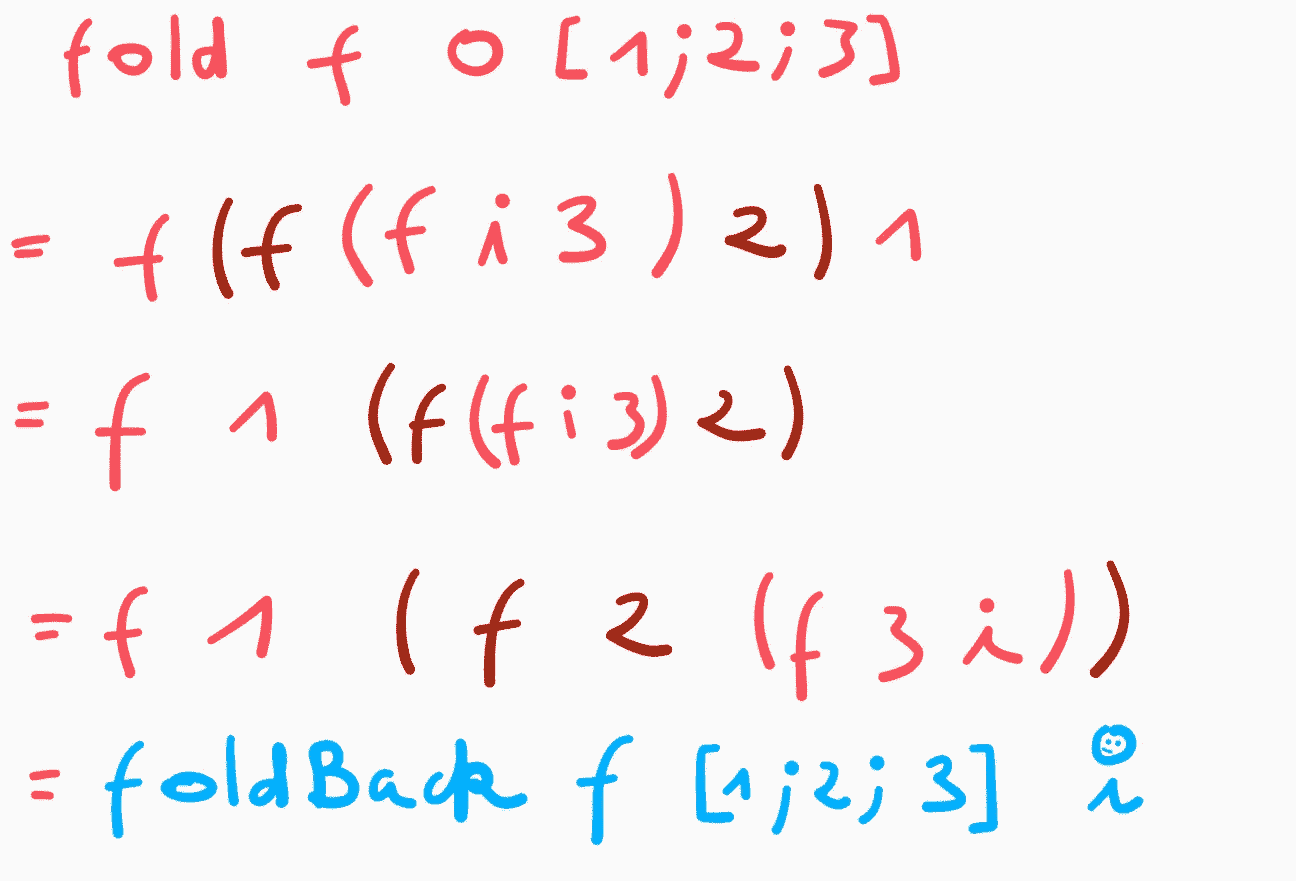 fold f 0 [1;2;3]
= f (f (f i 3) 2) 1
= f 1 (f (f i 3) 2)
= f 1 (f 2 (f 3 i))
= foldBack f [1;2;3] i